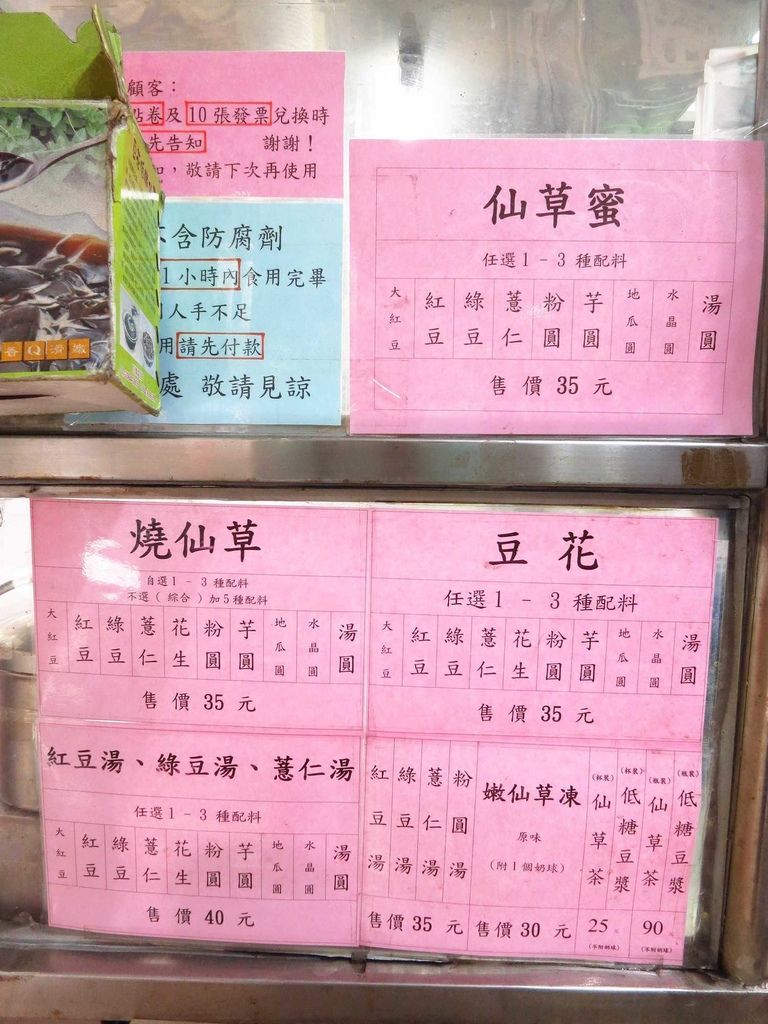 顧客：
點卷及10張發票兌換時
先告知 謝謝！
，敬請下次再使用
不含防腐劑
1小時內食用完畢
人手不足
用請先付款
處 敬請見諒
香Q滑嫩
仙草蜜
任選1 - 3 種配料
大紅豆 紅豆 綠豆 薏仁 粉圓 芋圓 地瓜圓 水晶圓 湯圓
售價 35 元
燒仙草
自選1 - 3 種配料
不選(綜合)加5種配料
大紅豆 紅豆 綠豆 薏仁 花生 粉圓 芋圓 地瓜圓 水晶圓 湯圓
售價 35 元
豆花
任選1 - 3 種配料
大紅豆 紅豆 綠豆 薏仁 花生 粉圓 芋圓 地瓜圓 水晶圓 湯圓
售價 35 元
紅豆湯、綠豆湯、薏仁湯
任選1 - 3 種配料
大紅豆 紅豆 綠豆 薏仁 花生 粉圓 芋圓 地瓜圓 水晶圓 湯圓
售價 40 元
紅豆湯 綠豆湯 薏仁湯 粉圓湯
售價 35 元
嫩仙草凍
原味
(附1個奶球)
售價 30 元
(杯裝)仙草茶 (杯裝)低糖豆漿
25 元
(不附奶球)
(瓶裝)仙草茶 (瓶裝)低糖豆漿
90 元
(不附奶球)